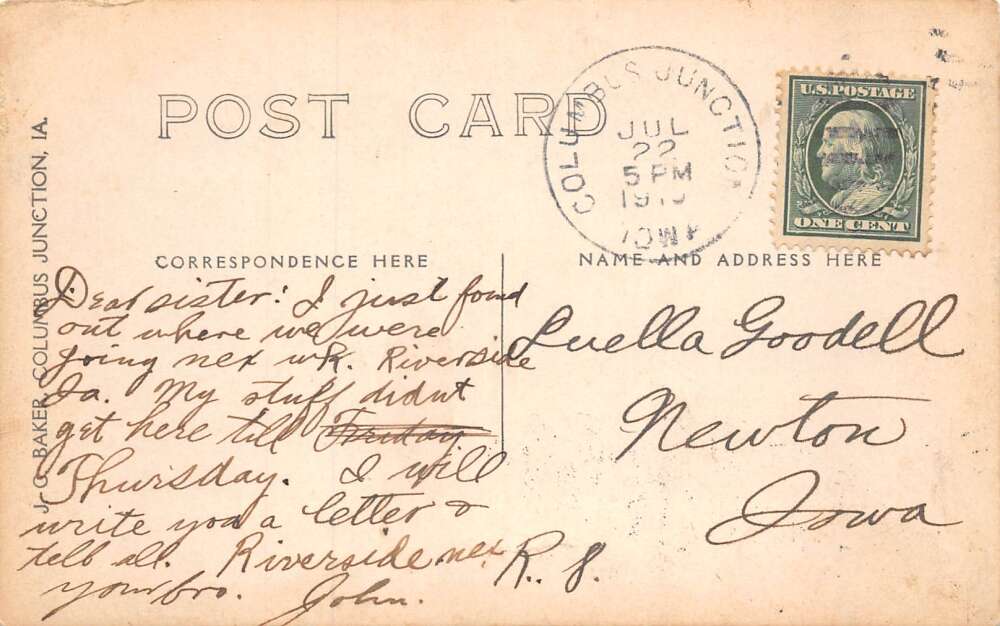 POST CARD
COLUMBUS JUNCTION
JUL
22
5 PM
IOWA
U.S. POSTAGE
ONE CENT
J. G. BAKER, COLUMBUS JUNCTION, IA.
CORRESPONDENCE HERE
NAME AND ADDRESS HERE
Dear sister: I just found
out where we were
going nex wk. Riverside
Ia. My stuff didnt
get here till Friday
Thursday. I will
write you a letter &
tell all. Riverside nex
your bro. John.
Luella Goodell
Newton
Iowa
R. 8.